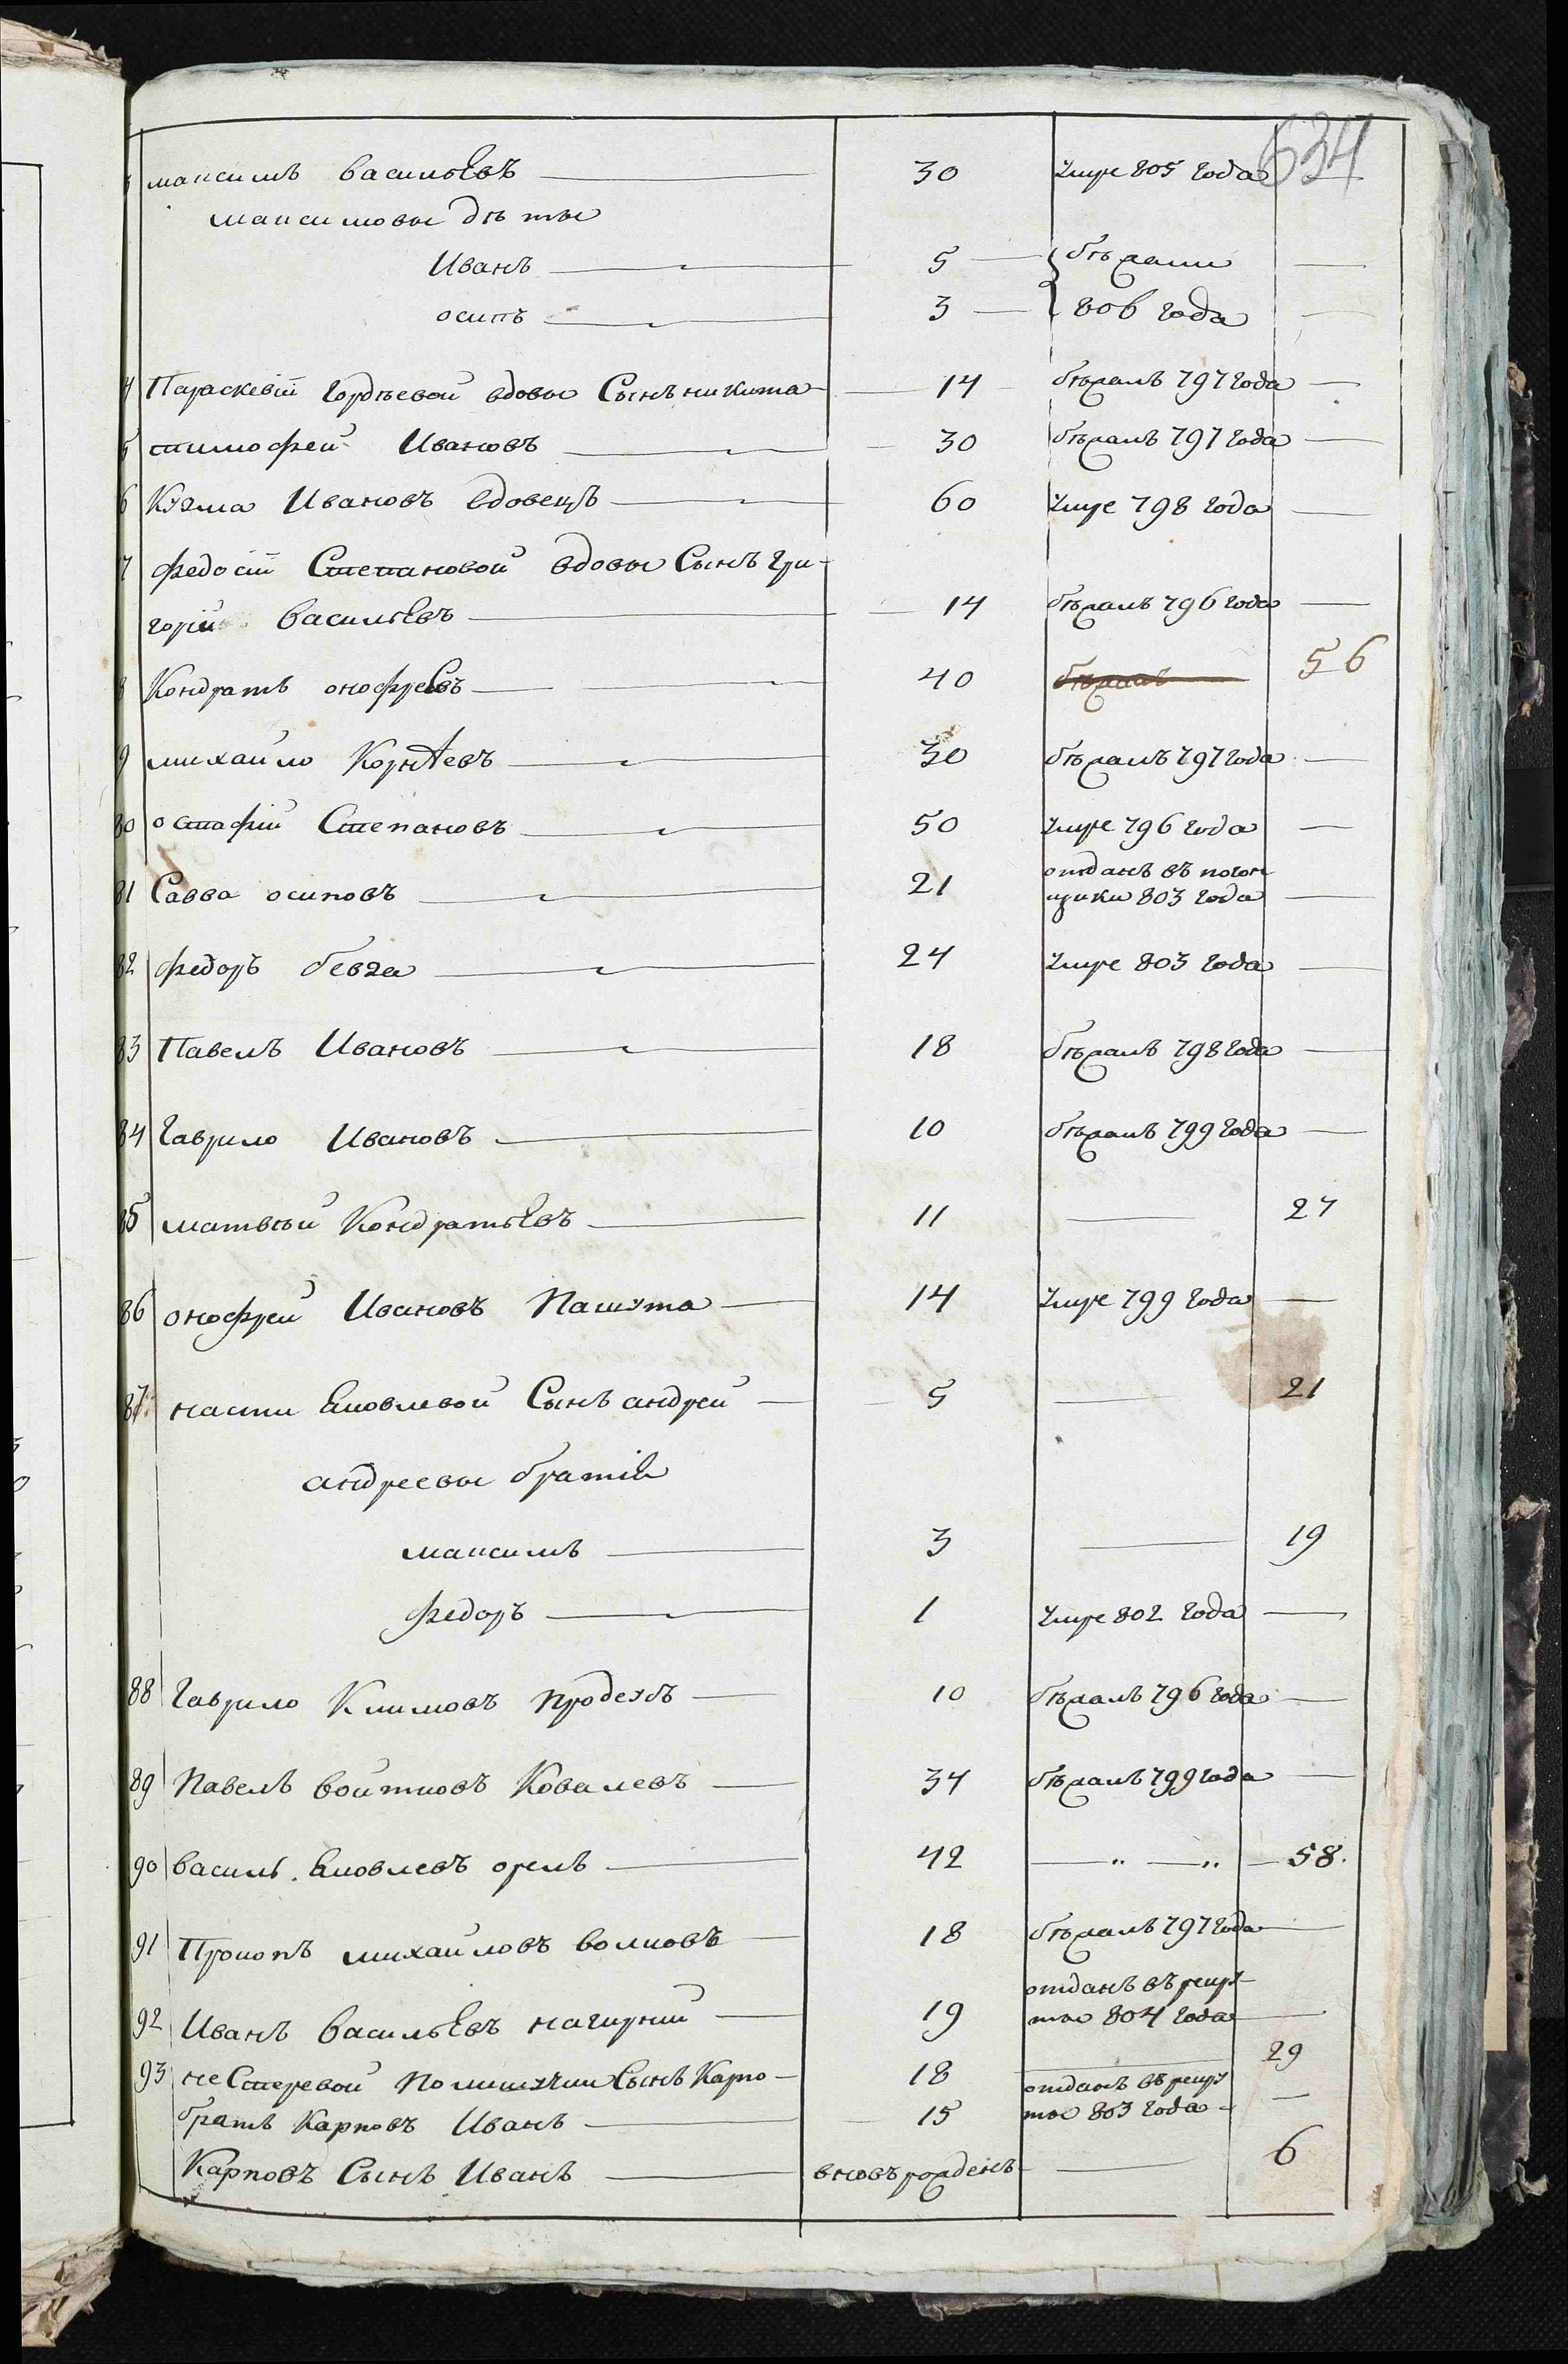 634
3 максимъ васильевъ 30 умре 805 года
максимовы дѣты
Иванъ 5 бѣжали
осипъ 3 806 года
4 Параскевiй гордѣевой вдовы Сынъ никита 14 бѣжалъ 797 года
5 тимофей Ивановъ 30 бѣжалъ 797 года
6 Кузма Ивановъ вдовецъ 60 умре 798 года
7 федосiй Степановой вдовы Сынъ гри-
горiй васильевъ 14 бѣжалъ 796 года
8 Кондратъ онофреевъ 40 бѣжалъ 56
9 михайло Корнѣевъ 30 бѣжалъ 797 года
80 остафiй Степановъ 50 умре 796 года
81 Савва осиповъ 21 отданъ въ погон
щики 803 года
82 федоръ бевза 24 умре 803 года
83 Павелъ Ивановъ 18 бѣжалъ 798 года
84 гаврило Ивановъ 10 бѣжалъ 799 года
85 матвѣй Кондратьевъ 11 27
86 онофрей Ивановъ Пашута 14 умре 799 года
87 насти Яковлевой Сынъ андрей 5 21
андреевы братiя
максимъ 3 19
федоръ 1 умре 802 года
88 гаврило Климовъ 10 бѣжалъ 796 года
89 Павелъ войтковъ Ковалевъ 34 бѣжалъ 799 года
90 василь Яковлевъ орелъ 42 58.
91 Прокопъ михайловъ волковъ 18 бѣжалъ 797 года
отданъ въ рекру
92 Иванъ васильевъ нагирний 19 ты 804 года
93 неСтеревой Полишучки Сынъ Карпо 18 29
отданъ въ рекру
братъ Карповъ Иванъ 15 ты 803 года
Карповъ Сынъ Иванъ вновь рожденъ 6